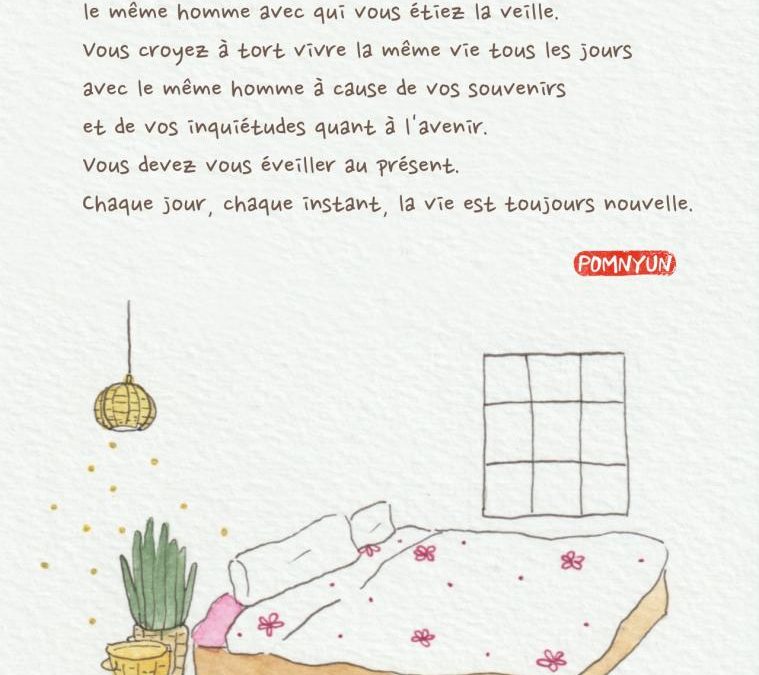 le même homme avec qui vous étiez la veille.
Vous croyez à tort vivre la même vie tous les jours
avec le même homme à cause de vos souvenirs
et de vos inquiétudes quant à l'avenir.
Vous devez vous éveiller au présent.
Chaque jour, chaque instant, la vie est toujours nouvelle.
POMNYUN